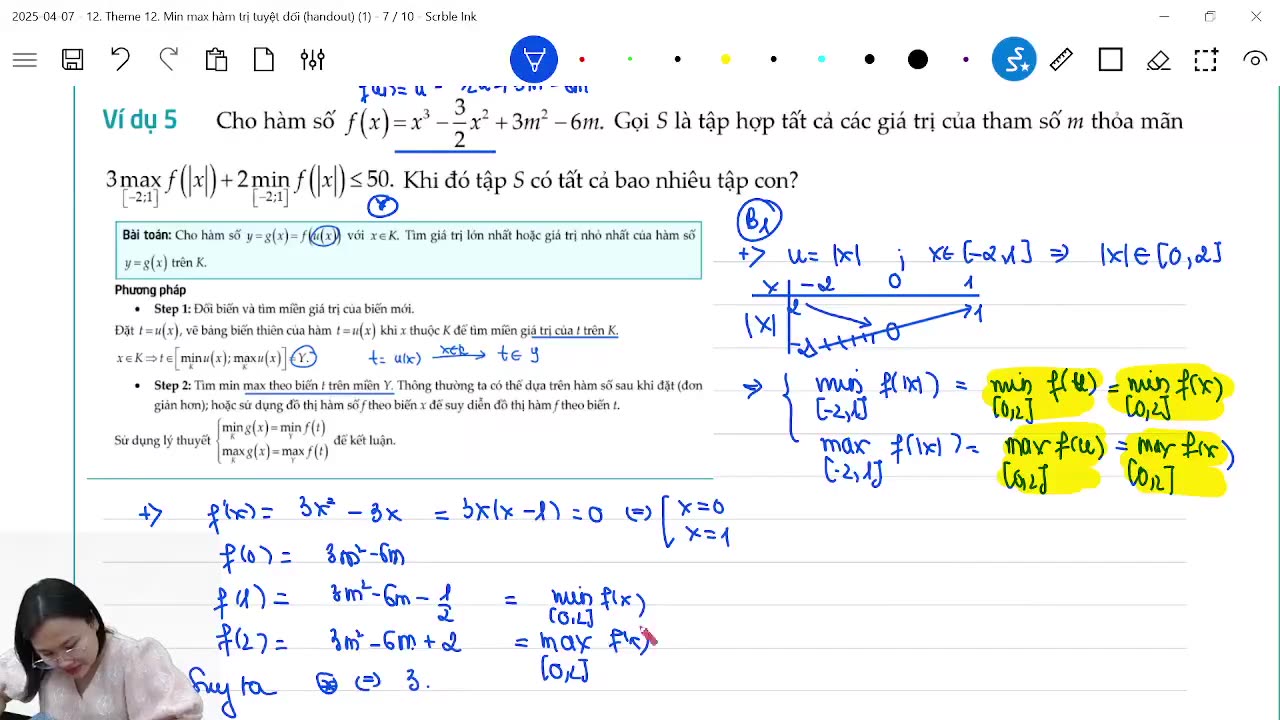 2025-04-07 - 12. Theme 12. Min max hàm trị tuyệt đối (handout) (1) - 7 / 10 - Scrble Ink
Ví dụ 5 Cho hàm số f(x) = x³ − 3/2 x² + 3m² − 6m. Gọi S là tập hợp tất cả các giá trị của tham số m thỏa mãn
3 max f(|x|) + 2 min f(|x|) ≤ 50. Khi đó tập S có tất cả bao nhiêu tập con?
[−2;1] [−2;1]
Bài toán: Cho hàm số y = g(x) = f(u(x)) với x ∈ K. Tìm giá trị lớn nhất hoặc giá trị nhỏ nhất của hàm số
y = g(x) trên K.
Phương pháp
• Step 1: Đổi biến và tìm miền giá trị của biến mới.
Đặt t = u(x), vẽ bảng biến thiên của hàm t = u(x) khi x thuộc K để tìm miền giá trị của t trên K.
x ∈ K ⇒ t ∈ [min u(x); max u(x)] = Y. t = u(x) x∈K → t ∈ y
K K
• Step 2: Tìm min max theo biến t trên miền Y. Thông thường ta có thể dựa trên hàm số sau khi đặt (đơn
giản hơn); hoặc sử dụng đồ thị hàm số f theo biến x để suy diễn đồ thị hàm f theo biến t.
Sử dụng lý thuyết { min g(x) = min f(t)
K Y
max g(x) = max f(t) để kết luận.
K Y
B1
+> u = |x| ; x ∈ [−2,1] ⇒ |x| ∈ [0,2]
x −2 0 1
|x| 2 0 1
⇒ { min f(|x|) = min f(u) = min f(x)
[−2,1] [0,2] [0,2]
max f(|x|) = max f(u) = max f(x)
[−2,1] [0,2] [0,2]
+> f'(x) = 3x² − 3x = 3x(x − 1) = 0 (=) [ x = 0
x = 1
f(0) = 3m² − 6m
f(1) = 3m² − 6m − 1/2 = min f(x)
[0,2]
f(2) = 3m² − 6m + 2 = max f(x)
[0,2]
Suy ra (=) 3.